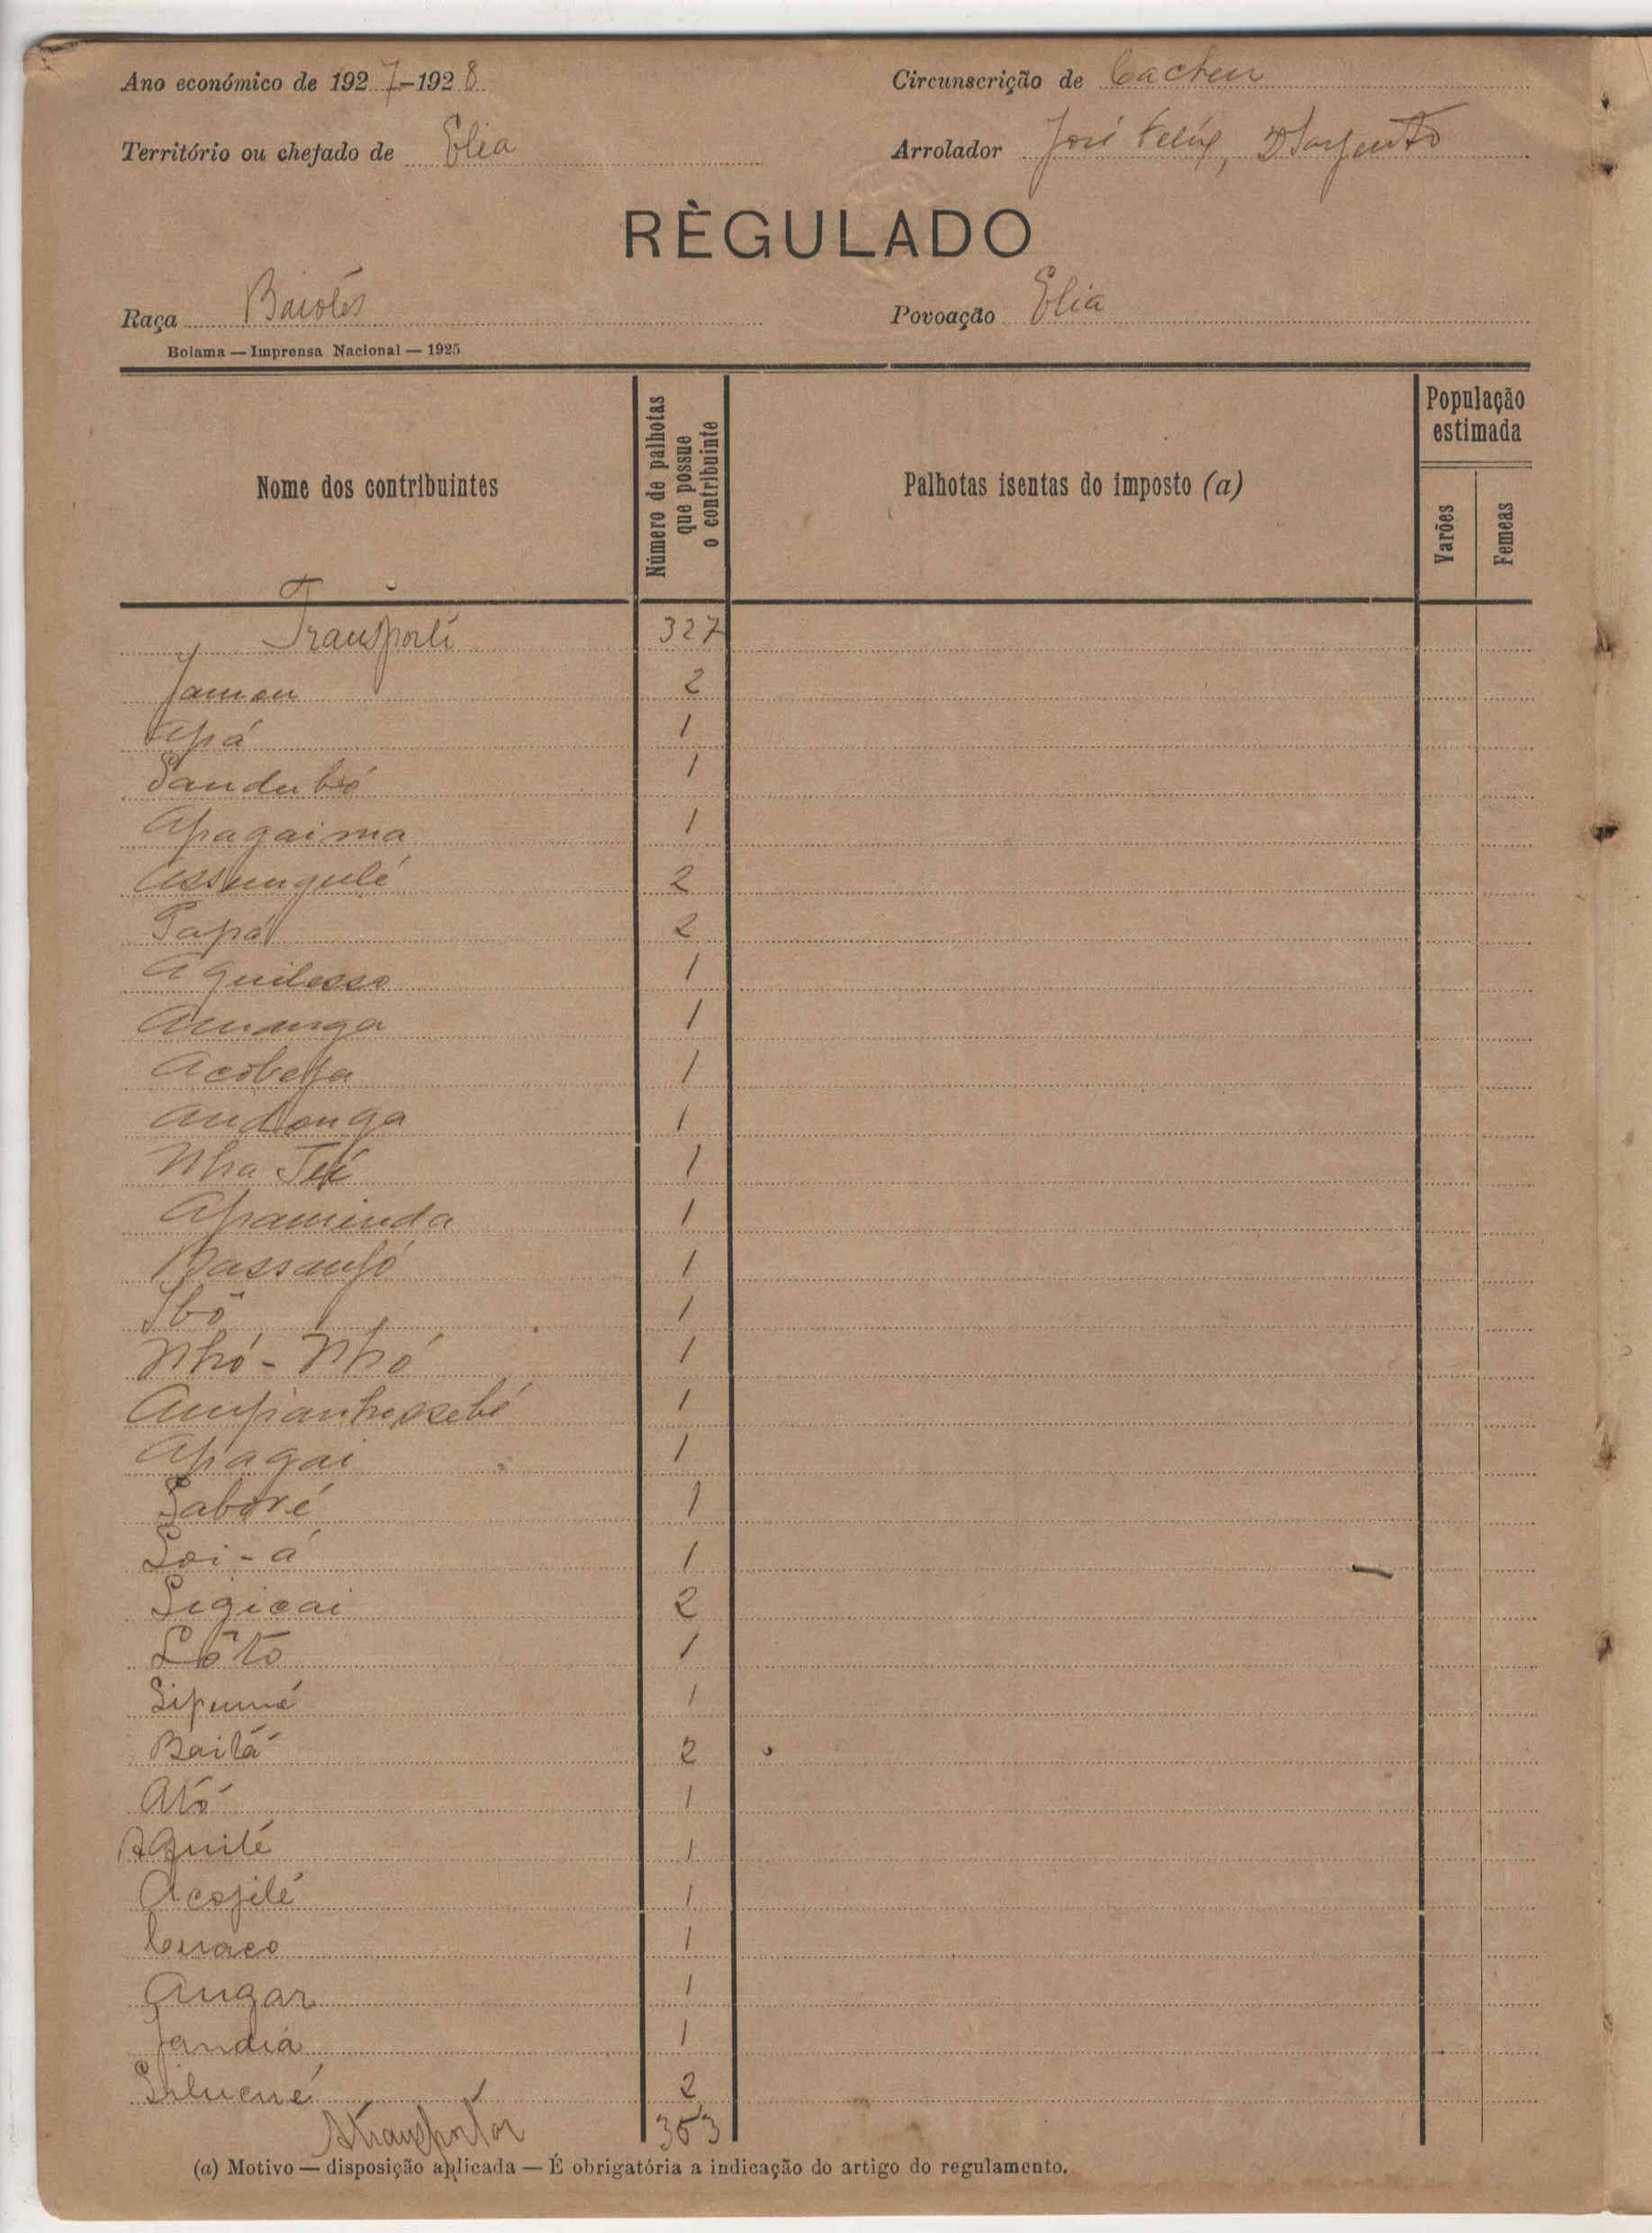 Ano económico de 1927-1928
Circunscrição de Cacheu
Território ou chefado de Elia
Arrolador José Felix, 2º Sargento
RÈGULADO
Raça Baiotes
Povoação Elia
Bolama — Imprensa Nacional — 1925
Nome dos contribuintes
Número de palhotas que possue o contribuinte
Palhotas isentas do imposto (a)
População estimada
Varões
Femeas
Transporte 327
Jamou 2
Apá 1
Sandubó 1
Apagaima 1
Assungulé 2
Papá 2
Aquilesso 1
Amanga 1
Acobeja 1
Andonga 1
Nha 1
Apaminda 1
Bassanfó 1
Ibó 1
Nhó - Nhó 1
Ampanhessebé 1
Apagai 1
Saboré 1
Loi-á 1
Sigicai 2
Lôtô 1
Sipumé 1
Bailá 2
Ató 1
Aquilé 1
Acojilé 1
Cuaco 1
Angar 1
Jandiá 1
Silucné 2
A transportar 363
(a) Motivo — disposição aplicada — É obrigatória a indicação do artigo do regulamento.